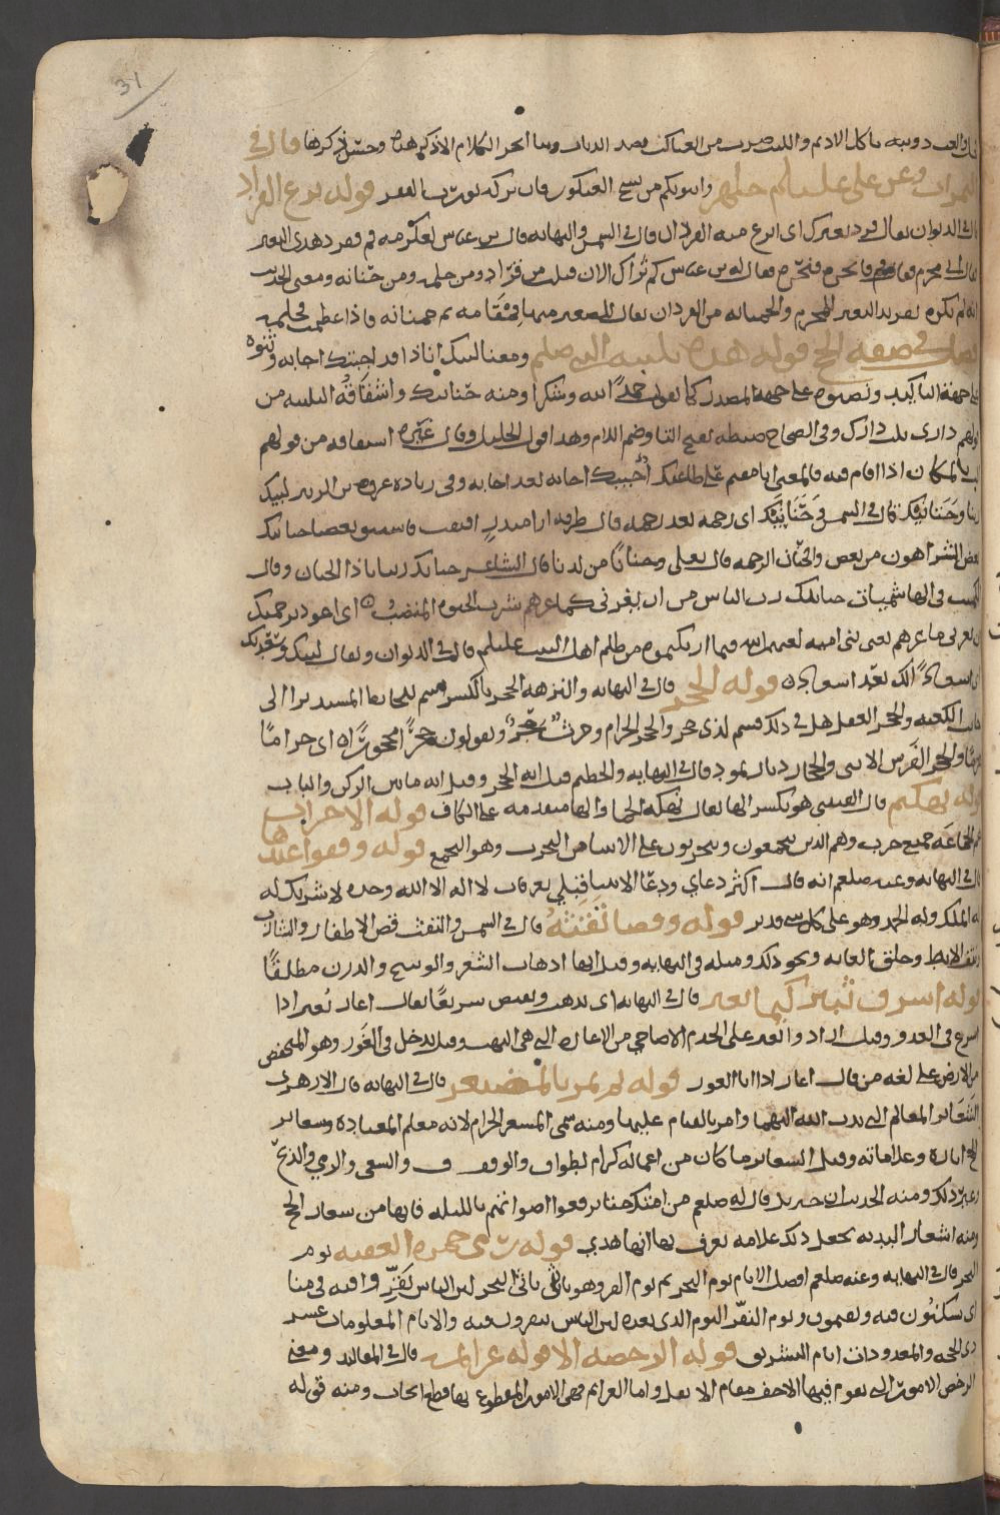 34
دويبه تاكل الاديم والليث ضرب من العناكب يصيد الذباب الكلام الا ذكرها وحسن ذكرها قال في
وعن علي عليلم من نسج العنكبوت فان تركه يورث الفقر قوله نزع القراد
قال في الديوان يقال قرد بعيرك اي انزع منه القردان قال في الشمس والنهايه قال بن عباس لعكرمه قم فقرد هذا البعير
فقال اني محرم فقال قم فانحره فنحره فقال له بن عباس كم تراك الان قتلت من قراد ومن حلمه ومن حمنانه ومعنى الحديث
انه لم يكره تقريد البعير للمحرم والحمنانه من القردان يقال للصغير منها قمقامه ثم حمنانه فاذا عظمت فحلمه
في صفه الحج قوله هذه تلبيه النبي صلعم ومعنا لبيك انا ذا قد اجبتك اجابه وثنوه
على جهة التاكيد ونصبوه على جهة المصدر كما تقول حمدًا لله وشكرا ومنه حنانيك واشتقاقه التلبيه من
قولهم داري تلب دارك وفي الصحاح ضبطه بفتح التا وضم اللام وهذا قول الخليل وقال غيره اشتقاقه من قولهم
لب بالمكان اذا اقام فيه فالمعنى انا مقيم على طاعتك اجيبك اجابه بعد اجابه وفي زياده عروه بن الزبير لبيك
ربنا وحنانيك قال في الشمس حنانيك اي رحمه بعد رحمه قال طرفه ابا منذر افنيت فاستبق بعضنا حنانيك
بعض الشر اهون من بعض والحنان الرحمه قال تعلى وحنانًا من لدنا قال الشاعر حنانك ربنا ياذا الحنان وقال
الكميت في الهاشميات حنانيك رب الناس من ان يغرني كما غرهم شرب الحيوه المنضب اي اعوذ برحمتك
ان يغرني ما غرهم يعني بني اميه لعنهم الله فيما ارتكبوه من ظلم اهل البيت عليلم قال في الديوان ويقال لبيك وسعديك
اي اسعادًا لك بعد اسعاد قوله الحجر قال في النهايه والنزهه الحجر بالكسر اسم للحايط المستدير الى
جانب الكعبه والحجر العقل هل في ذلك قسم لذي حجر والحجر الحرام وحرث حجر ويقولون حجرًا محجورًا اي حراما
محرمًا والحجر الفرس الانثى والحجر ديار ثمود قال في النهايه والحطيم قيل انه الحجر وقيل انه مابين الركن والباب
قوله نهكتهم قال القتيبي هو بكسر الها يقال نهكه الحما والها مقدمه على الكاف قوله الاحزاب
هم الجماعه جميع حزب وهم الذين يجتمعون ويتحزبون على الانبيا من التحزب وهو التجمع قوله وقفوا عندها
قال في النهايه وعنه صلعم انه قال اكثر دعاي ودعا الانبيا قبلي بعرفات لا اله الا الله وحده لا شريك له
له الملك وله الحمد وهو على كل شي قدير قوله وقضا تفثه قال في الشمس والتفث قص الاظفار والشارب
ونتف الابط وحلق العانه ونحو ذلك ومثله في النهايه وقيل انها اذهاب الشعر والوسخ والدرن مطلقًا
قوله اشرق ثبير كيما نغير قال في النهايه اي نذهب ونفيض سريعًا يقال اغار يُغير اذا
اسرع في العدو وقيل اراد نغير على لحوم الاضاحي من الاغاره التي هي النهب وقيل ندخل في الغَور وهو المنخفض
من الارض على لغه من قال اغار اذا اتا الغور قوله ثم يمر بالمشعر قال في النهايه قال الازهري
الشعاير المعالم التي ندب الله اليها وامر بالقيام عليها ومنه سمي المشعر الحرام لانه معلم للعباده وشعاير
الحج اثاره وعلاماته وقيل الشعاير ما كان من اعماله كرام لطواف والوقوف والسعي والرمي والذبح
وغير ذلك ومنه الحديث ان جبريل قال له صلعم مر امتك حتا يرفعوا اصواتهم بالتلبيه فانها من شعار الحج
ومنه اشعار البدنه يجعل ذلك علامه يعرف بها انها هدي قوله رمى جمره العقبه يوم
النحر قال في النهايه وعنه صلعم افضل الايام يوم النحر ثم يوم القر وهو ثاني النحر لان الناس يَقَرّوا فيه في منا
اي يسكنون فيه ويقيمون ويوم النفر اليوم الذي بعده لان الناس ينفرون فيه والايام المعلومات عشر
ذي الحجه والمعدودات ايام التشريق قوله الرخصه الا قوله عزايمه قال في المقاليد ومعنى
الرخص الامور التي يقوم فيها الاخف مقام الاثقل واما العزايم فهي الامور المقطوع بها قطع ايجاب ومنه قوله